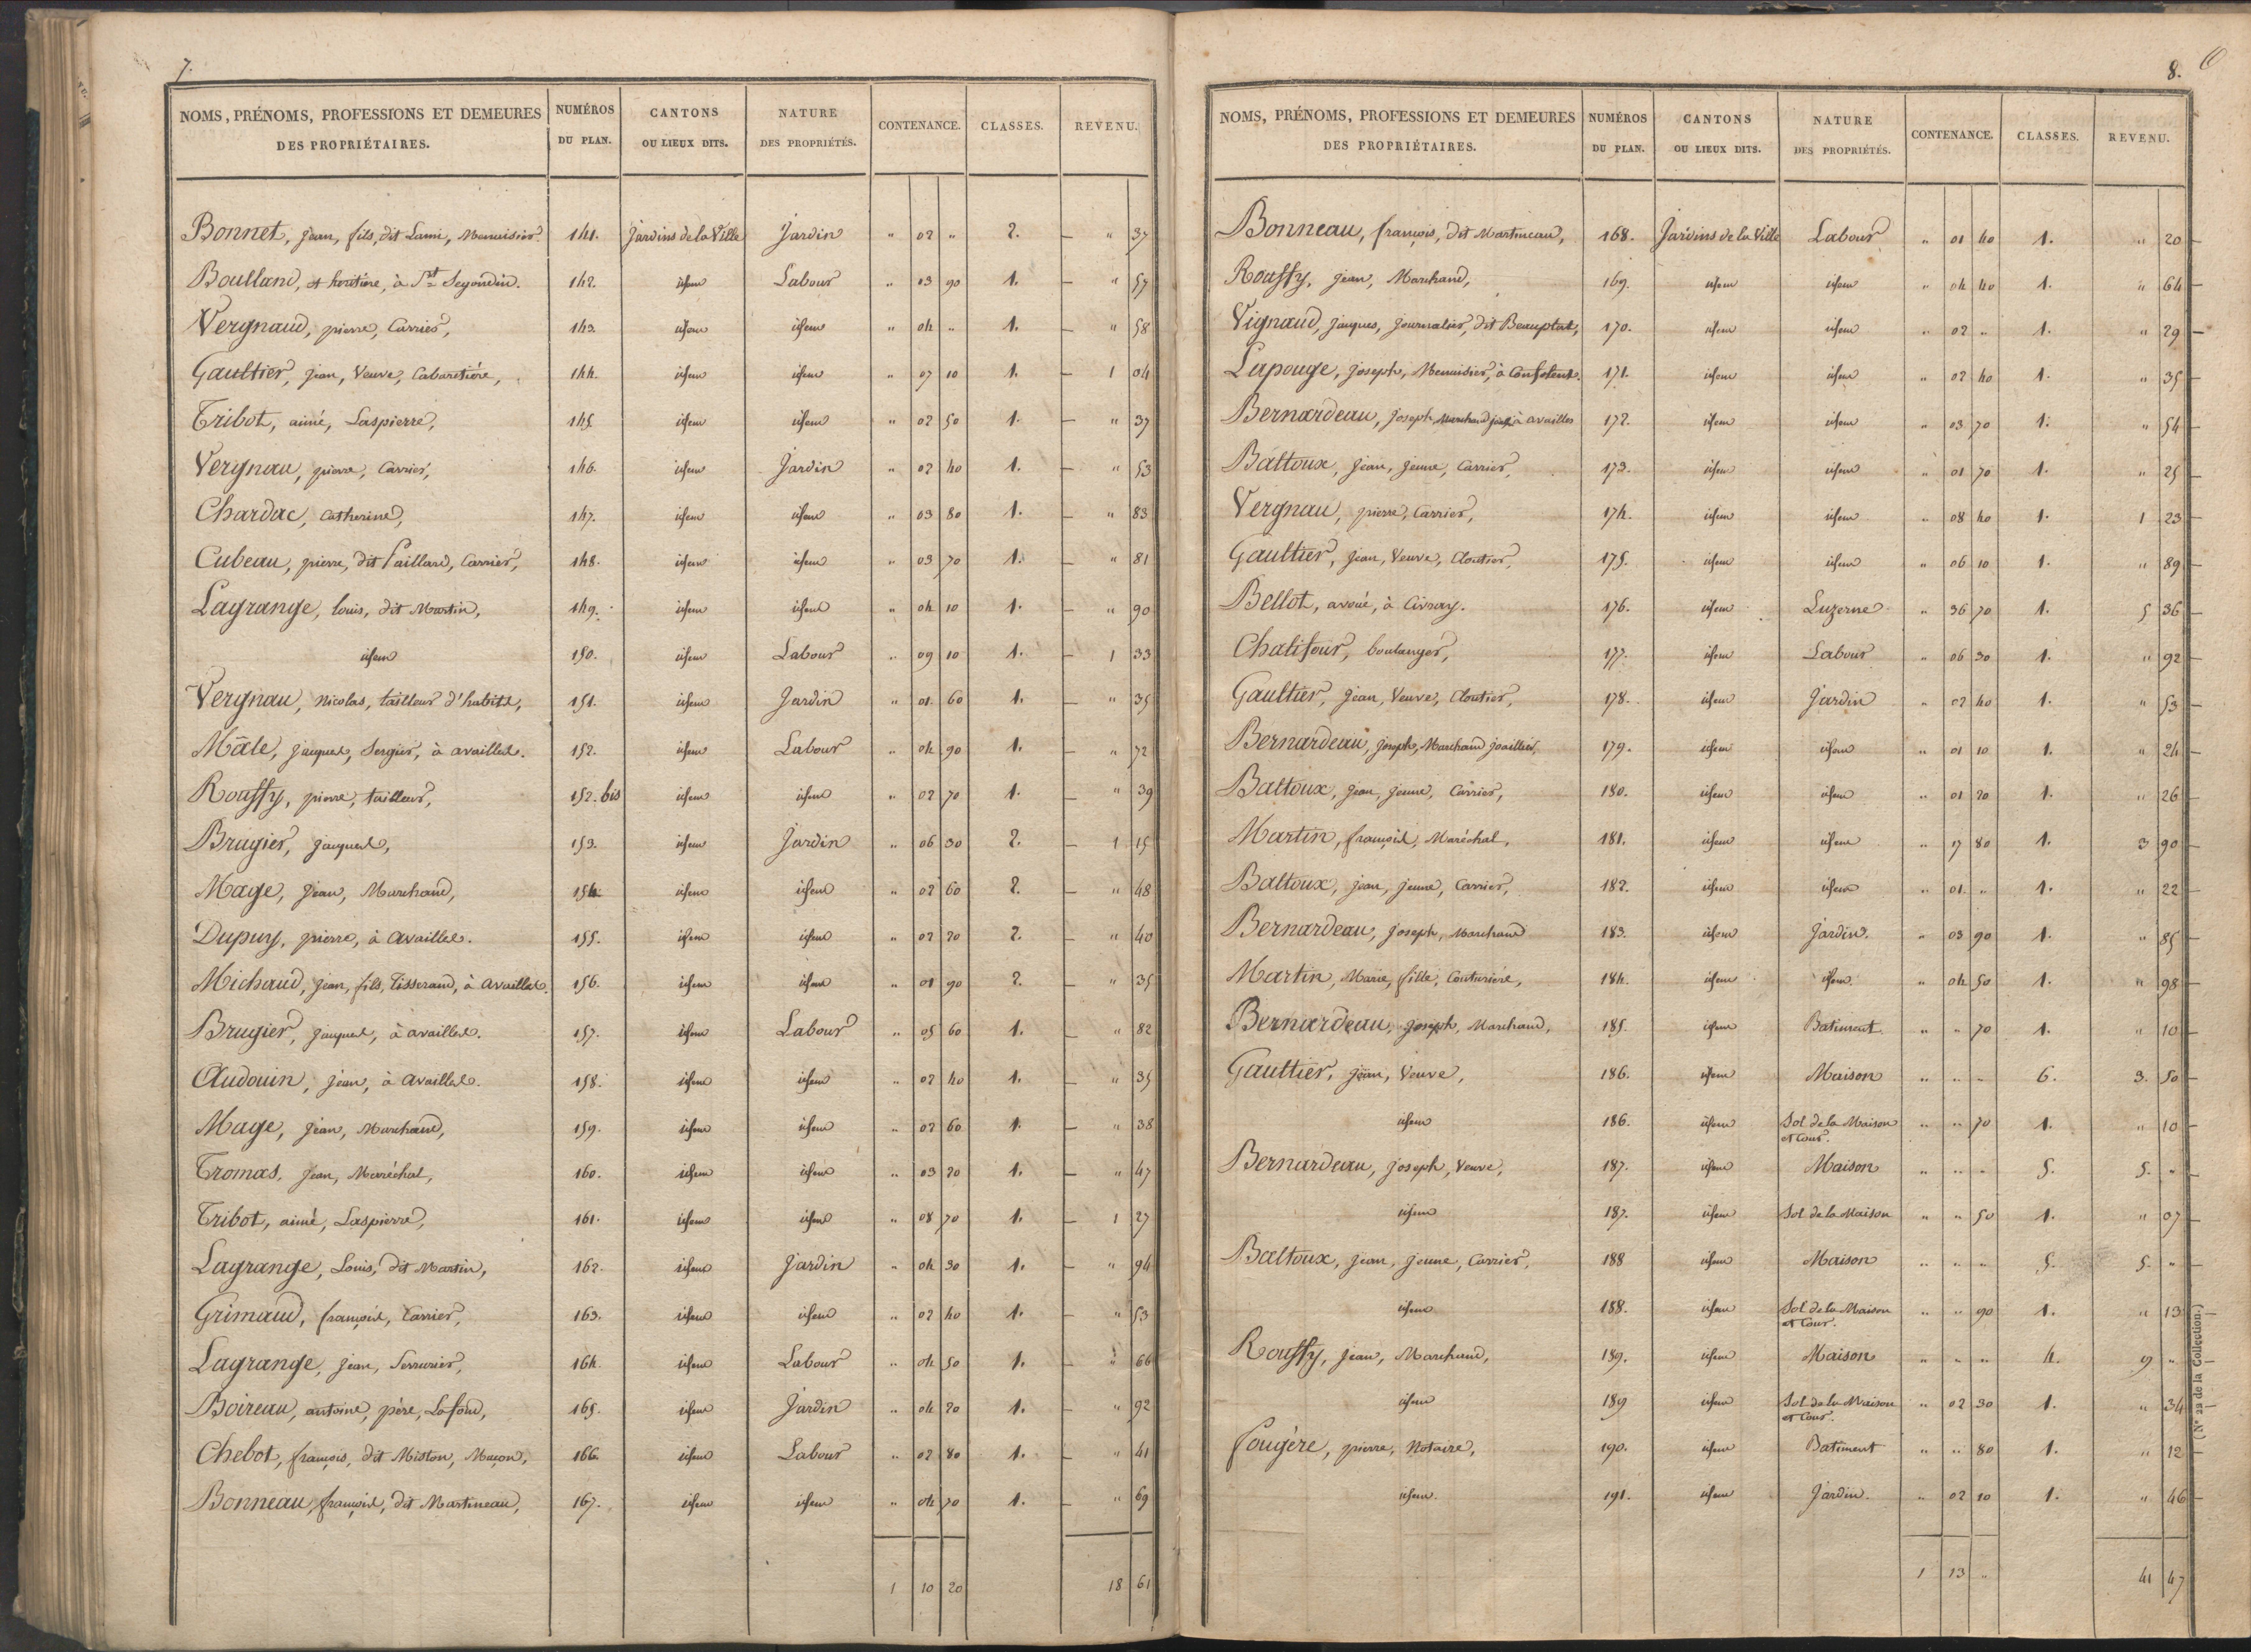 7.
NOMS, PRÉNOMS, PROFESSIONS ET DEMEURES DES PROPRIÉTAIRES. | NUMÉROS DU PLAN. | CANTONS OU LIEUX DITS. | NATURE DES PROPRIÉTÉS. | CONTENANCE. | CLASSES. | REVENU.
Bonnet, jean, fils, dit Lami, Menuisier. 141. Jardins de la Ville Jardin " 02 " 2. " 37
Boulland, à St Segondin. 142. idem Labour " 03 90 1. " 57
Vergnaud, pierre, Carrier, 143. idem idem " 04 " 1. " 58
Gaultier, jean, Veuve, Cabaretière, 144. idem idem " 07 10 1. 1 04
Tribot, aimé, Laspierre, 145. idem idem " 02 50 1. " 37
Vergnau, pierre, Carrier, 146. idem Jardin " 02 40 1. " 53
Chardac, Catherine, 147. idem idem " 03 80 1. " 83
Cubeau, pierre, dit Paillard, Carrier, 148. idem idem " 03 70 1. " 81
Lagrange, louis, dit Martin, 149. idem idem " 04 10 1. " 90
idem 150. idem Labour " 09 10 1. 1 33
Vergnau, Nicolas, tailleur d'habits, 151. idem Jardin " 01 60 1. " 35
Mâle, jaques, Sergier, à availles. 152. idem Labour " 04 90 1. " 72
Rouffy, pierre, tailleur, 152. bis idem idem " 02 70 1. " 39
Brugier, jaques, 153. idem Jardin " 06 30 2. 1 15
Mage, jean, Marchand, 154. idem idem " 02 60 2. " 48
Dupuy, pierre, à Availles. 155. idem idem " 02 20 2. " 40
Michaud, jean, fils, Tisserand, à Availles. 156. idem idem " 01 90 2. " 35
Brugier, jaques, à availles. 157. idem Labour " 05 60 1. " 82
Audouin, jean, à Availles. 158. idem idem " 02 40 1. " 35
Mage, jean, Marchand, 159. idem idem " 02 60 1. " 38
Tromas, jean, Maréchal, 160. idem idem " 03 20 1. " 47
Tribot, aimé, Laspierre, 161. idem idem " 08 70 1. 1 27
Lagrange, Louis, dit Martin, 162. idem Jardin " 04 30 1. " 94
Grimaud, françois, Carrier, 163. idem idem " 02 40 1. " 53
Lagrange, jean, Serrurier, 164. idem Labour " 04 50 1. " 66
Boireau, antoine, père, Lafond, 165. idem Jardin " 04 20 1. " 92
Chebot, françois, dit Miston, Maçon, 166. idem Labour " 02 80 1. " 41
Bonneau, françois, dit Martineau, 167. idem idem " 04 70 1. " 69
1 10 20 18 61
8.
NOMS, PRÉNOMS, PROFESSIONS ET DEMEURES DES PROPRIÉTAIRES. | NUMÉROS DU PLAN. | CANTONS OU LIEUX DITS. | NATURE DES PROPRIÉTÉS. | CONTENANCE. | CLASSES. | REVENU.
Bonneau, françois, dit Martineau, 168. Jardins de la Ville Labour " 01 40 1. " 20
Rouffy, jean, Marchand, 169. idem idem " 04 40 1. " 64
Vignaud, jaques, journalier, dit Beauplat, 170. idem idem " 02 " 1. " 29
Lapouge, joseph, Menuisier, à Confolens. 171. idem idem " 02 40 1. " 35
Bernardeau, joseph, Marchand à availles 172. idem idem " 03 70 1. " 54
Baltoux, jean, jeune, Carrier, 173. idem idem " 01 70 1. " 25
Vergnau, pierre, Carrier, 174. idem idem " 08 40 1. 1 23
Gaultier, jean, Veuve, Cloutier, 175. idem idem " 06 10 1. " 89
Bellot, avoué, à Civray. 176. idem Luzerne " 36 70 1. 5 36
Chatifour, boulanger, 177. idem Labour " 06 30 1. " 92
Gaultier, jean, Veuve, Cloutier, 178. idem Jardin " 02 40 1. " 53
Bernardeau, joseph, Marchand joaillier, 179. idem idem " 01 10 1. " 24
Baltoux, jean, jeune, Carrier, 180. idem idem " 01 20 1. " 26
Martin, françois, Maréchal, 181. idem idem " 17 80 1. 3 90
Baltoux, jean, jeune, Carrier, 182. idem idem " 01. " 1. " 22
Bernardeau, joseph, Marchand 183. idem Jardin. " 03 90 1. " 85
Martin, Marie, fille, Couturière, 184. idem idem. " 04 50 1. " 98
Bernardeau, joseph, Marchand, 185. idem Batiment " " 70 1. " 10
Gaultier, jean, Veuve, 186. idem Maison " " " 6. 3. 50
idem 186. idem Sol de la Maison et Cour. " " 70 1. " 10
Bernardeau, joseph, Veuve, 187. idem Maison " " " 5. 5. "
idem 187. idem Sol de la Maison " " 50 1. " 07
Baltoux, jean, jeune, Carrier, 188 idem Maison " " " 5. 5. "
idem 188. idem Sol de la Maison et Cour. " " 90 1. " 13
Rouffy, jean, Marchand, 189. idem Maison " " " 4. 9 "
idem 189 idem Sol de la Maison et Cour. " 02 30 1. " 34
Fougère, pierre, Notaire, 190. idem Batiment " " 80 1. " 12
idem. 191. idem Jardin. " 02 10 1. " 46
1 13 " 41 47
(N° 22 de la Collection.)